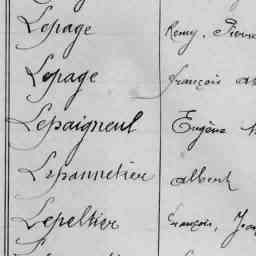 Lepage Remy, Pierre
Lepage françois
Lepaigneul Eugène
Lepannetier Albert
Lepeltier François, Jean